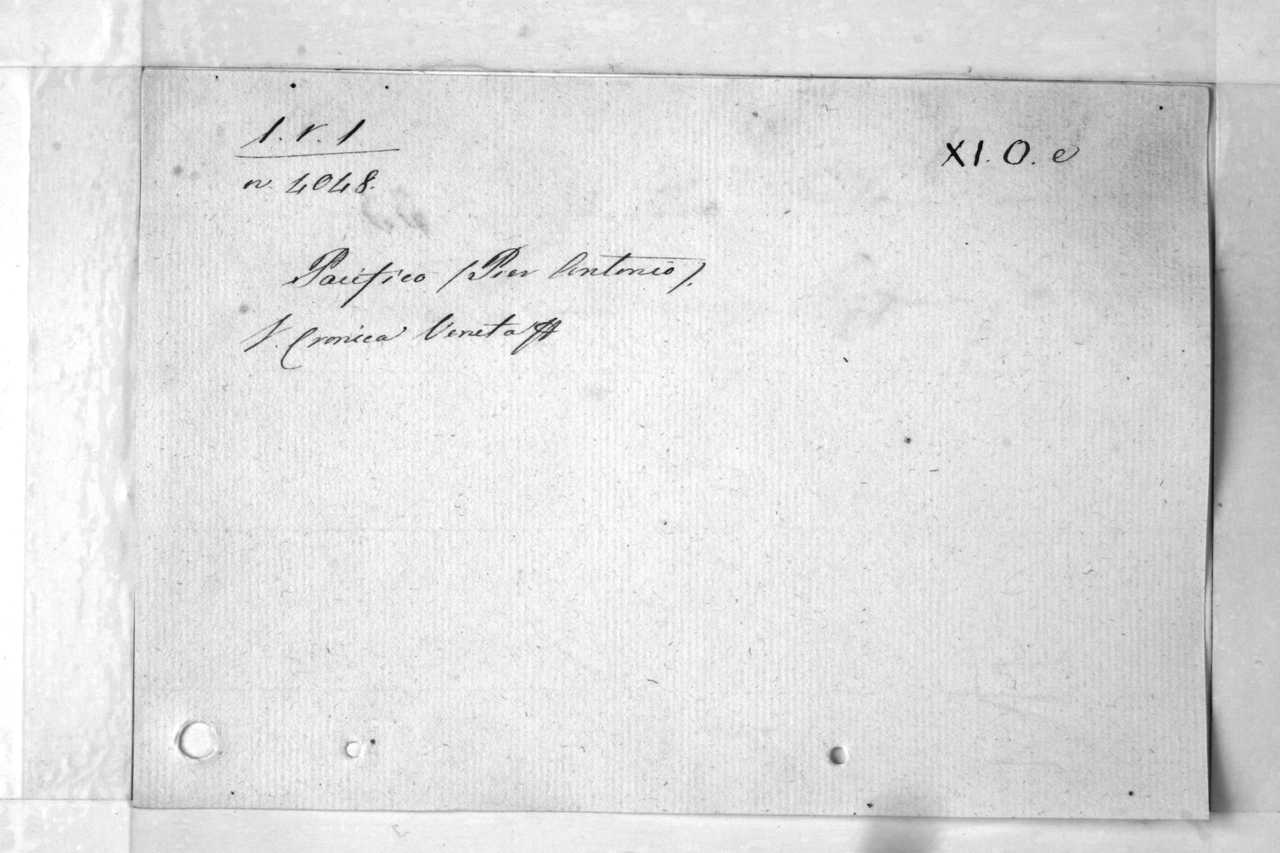 1. v. 1
XI. O. e
n. 4048.
Pacifico (Pier Antonio).
V. Cronica Veneta